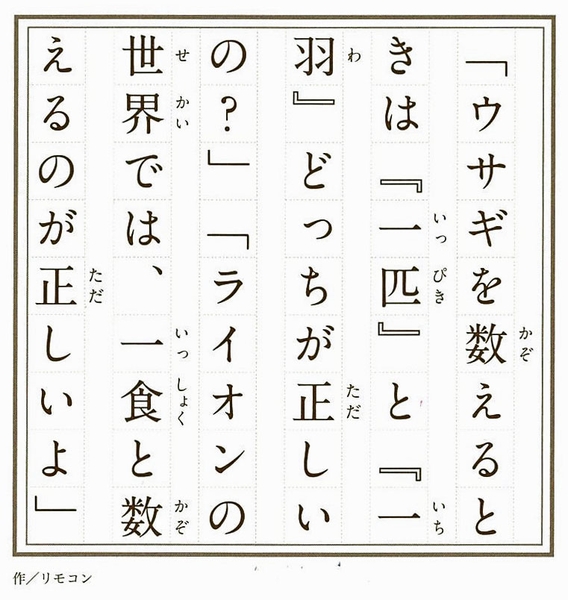 「ウサギを数えると
きは『一匹』と『一
羽』どっちが正しい
の?」「ライオンの
世界では、一食と数
えるのが正しいよ」
作/リモコン